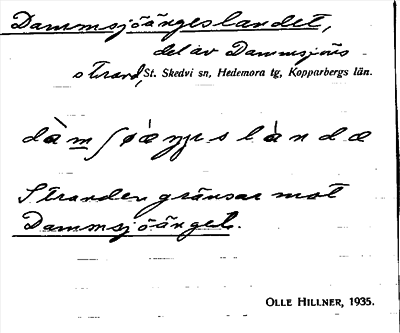 Dammsjöängeslandet,
del av Dammsjöns
strand, St. Skedvi sn, Hedemora tg, Kopparbergs län.
Stranden gränsar mot
Dammsjöänget.
OLLE HILLNER, 1935.